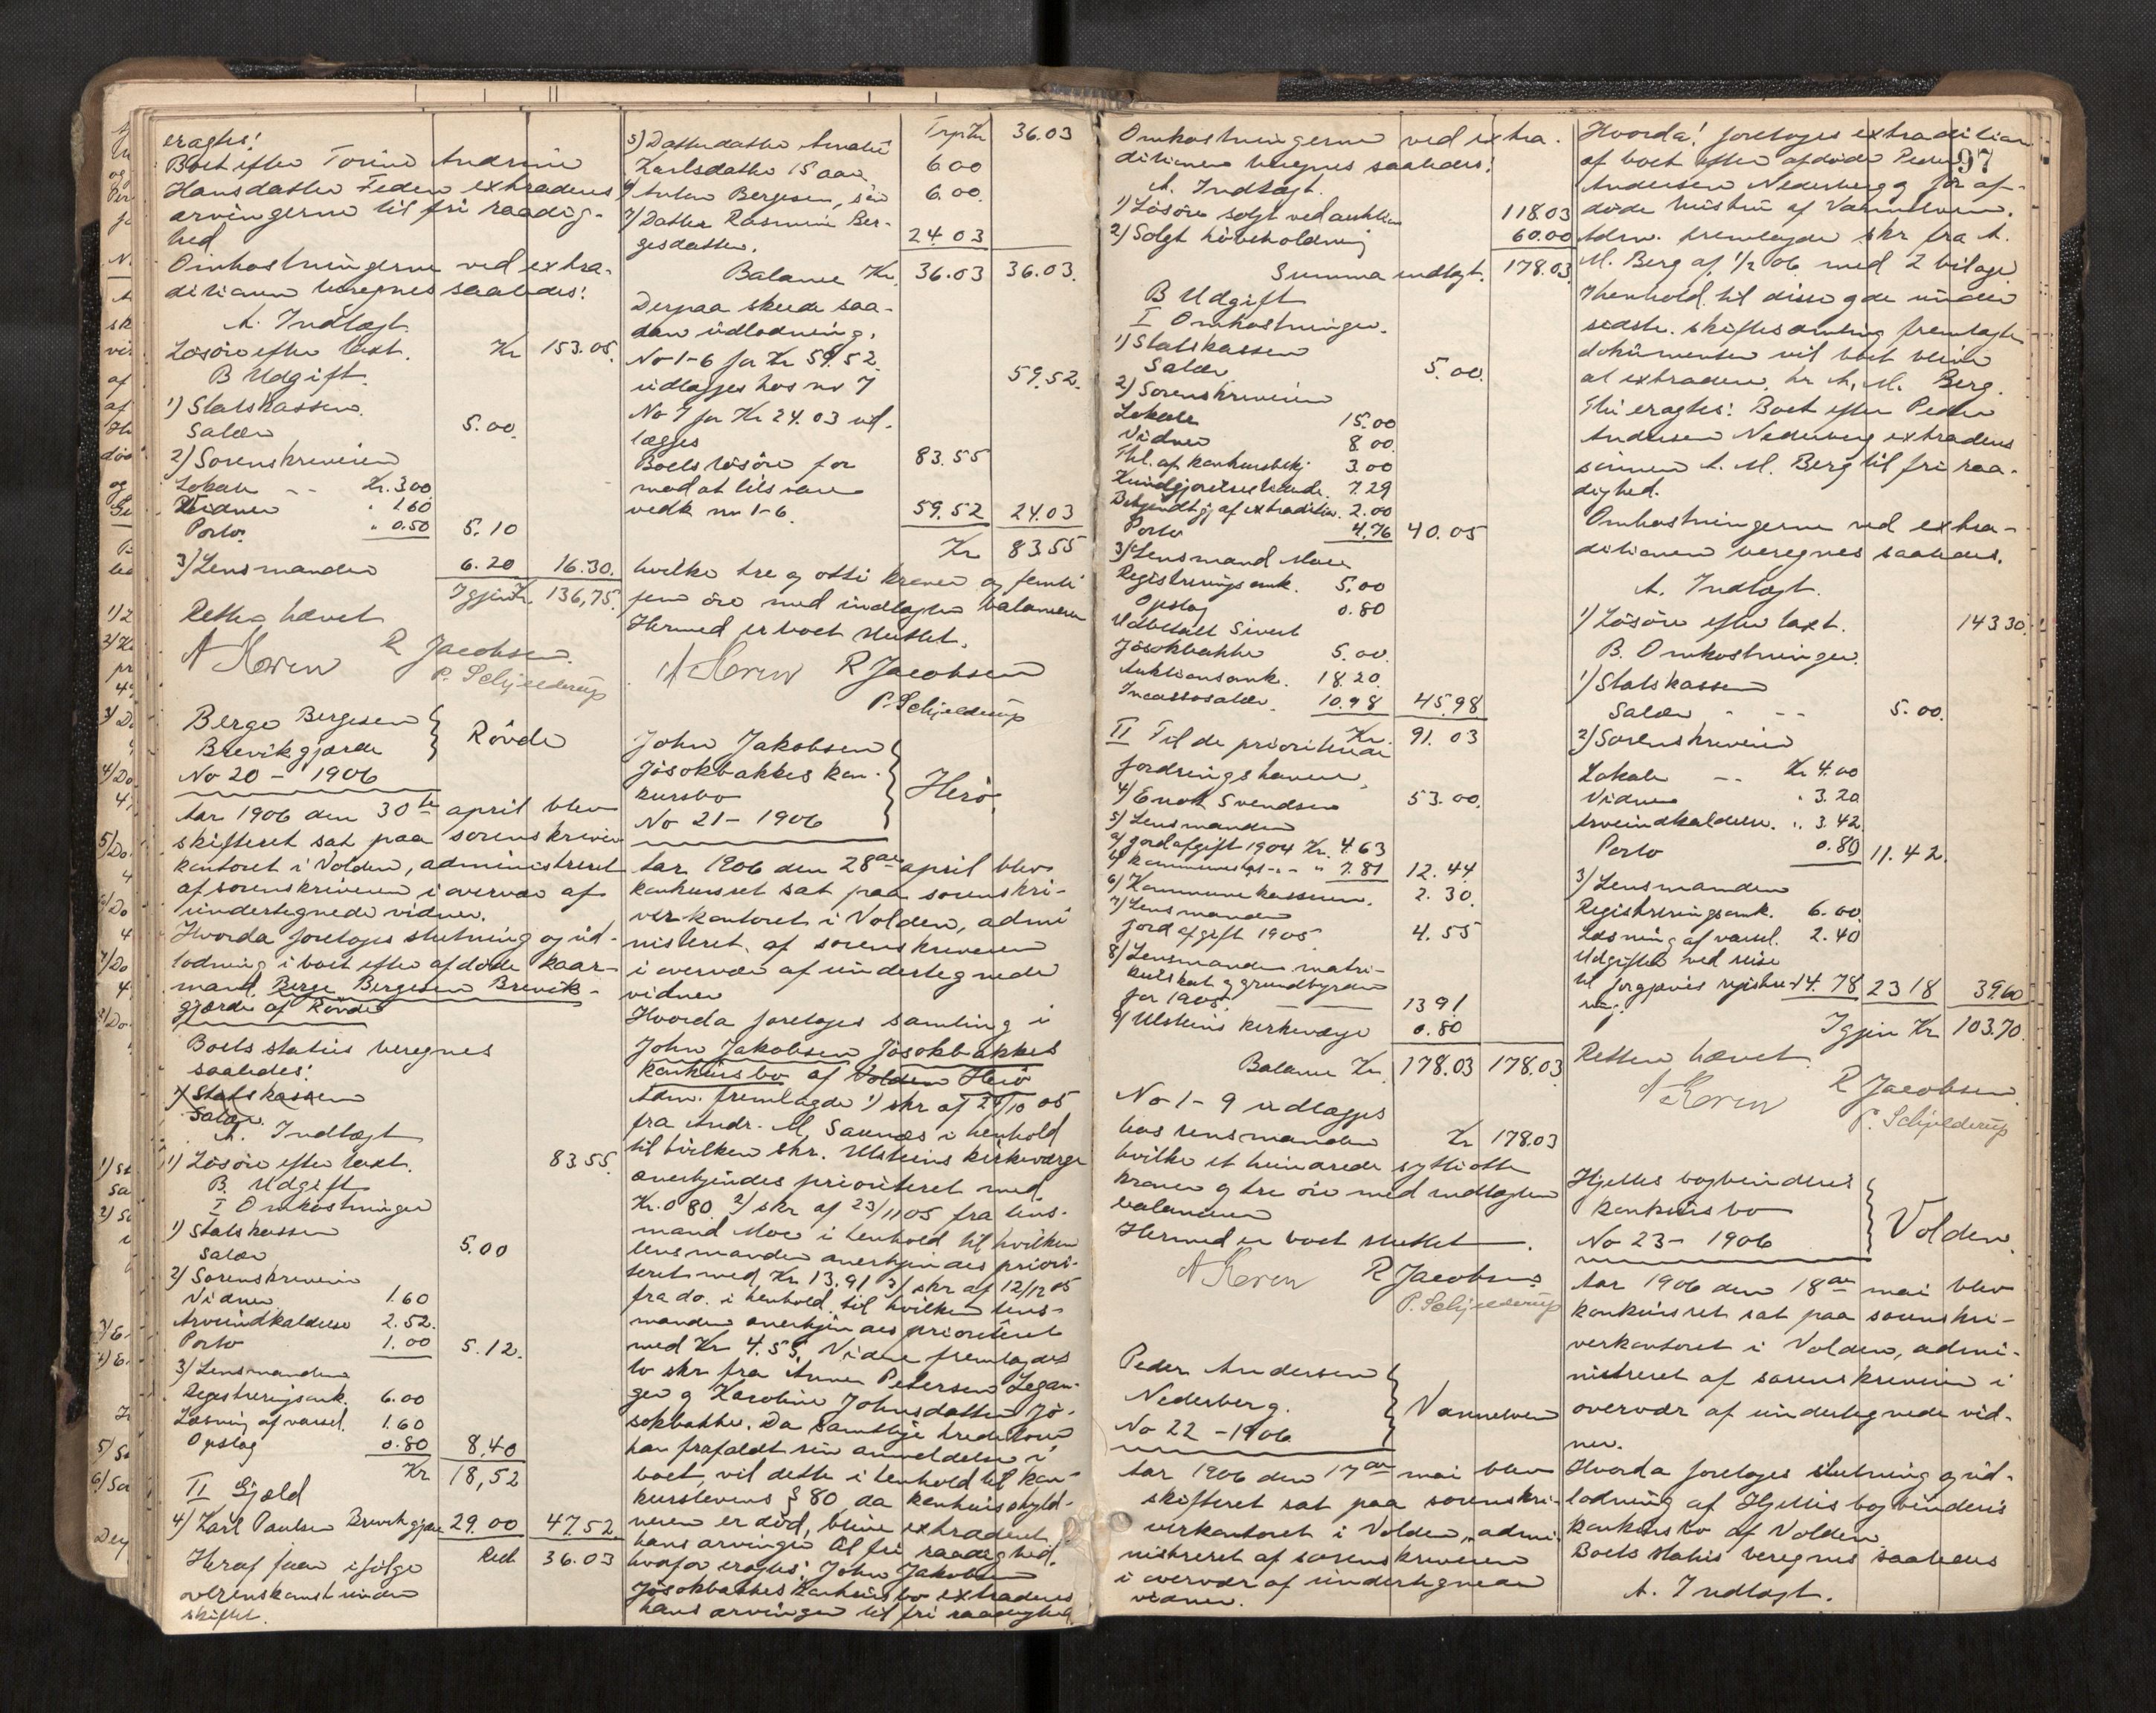 eragtes!
Boet efter Torine Andrine
Hansdatter Feden extraderes
arvingerne til fri raadig-
hed
Omkostningerne ved extra-
ditionen beregnes saaledes:
A. Indtægt.
Løsøre efter taxt. Kr 153.05.
B Udgift.
1) Statskassen.
Salær 5.00.
2) Sorenskriveren
Lokale -- Kr. 3.00
Vidner " 1.60
Porto. " 0.50 5.10
3) Lensmanden 6.20 16.30.
Igjen Kr. 136,75.
Retten hævet
A Koren R Jacobsen.
P. Schjelderup
Berge Bergesen
Brevikgjærde } Røvde
No 20 - 1906
Aar 1906 den 30te april blev
skifteret sat paa sorenskriver
kontoret i Volden, administreret
af sorenskriveren i overvær af
undertegnede vidner.
Hvorda foretoges slutning og ud-
lodning i boet efter afdøde kaar-
mand Berge Bergesen Brevik-
gjærde af Røvde
Boets status beregnes
saaledes:
1) Statskassen
Salær.
A. Indtægt
1) Løsøre efter taxt. 83.55.
B. Udgift
I Omkostninger
1) Statskassen
Salær 5.00
2) Sorenskriveren
Vidner 1.60
Arveindkaldelse 2.52.
Porto 1.00 5.12.
3) Lensmanden
Registreringsomk. 6.00
Læsning af varsel. 1.60
Opslag 0.80 8.40
Kr 18,52
II Gjæld
4) Karl Paulsen Brevikgjær. 29.00 47.52.
Rest 36.03
Heraf faar ifølge
overenskomst under
skiftet.
5) Datterdatter Amalie Trp Kr 36.03
Karlsdatter 15 aar 6.00
6) Anton Bergesen, søn 6.00.
7) Datter Rasmine Ber-
gesdatter. 24.03
Balance Kr. 36.03 36.03.
Derpaa skede saa-
dan udlodning.
No 1-6 for Kr 59.52.
udlægges hos no 7 59.52.
No 7 for Kr 24.03 ud-
lægges
Boets løsøre for 83.55
mod at tilsvare
vedk no 1-6. 59.52 24.03
Kr 83.55
hvilke tre og otti kroner og femti
fem øre med indtægten balancerer
Hermed er boet sluttet.
A Koren R Jacobsen
P. Schjelderup
John Jakobsen
Jøsokbakkes kon-
kursbo } Herø.
No 21 - 1906
Aar 1906 den 28de april blev
konkursret sat paa sorenskri-
verkontoret i Volden, admi
nistreret af sorenskriveren
i overvær af undertegnede
vidner
Hvorda foretoges samling i
John Jakobsen Jøsokbakkes
konkursbo af Volden Herø
Adm. fremlagde 1) skr af 24/10 05
fra Andr. M. Saunæs i henhold
til hvilken skr. Ulsteins kirkeværge
anerkjendes prioriteret med
Kr. 0 80. 2) skr af 23/11 05 fra lens-
mand Moe i henhold til hvilken
lensmanden anerkjendes priori-
teret med Kr. 13.91 3) skr af 12/12 05
fra do. i henhold til hvilken lens-
manden anerkjendes prioriteret
med Kr 4.55. Videre fremlagdes
to skr fra Anne Petersen Legan-
ger og Karoline Johnsdatter Jø-
sokbakke. Da samtlige kreditorer
har frafaldt sin anmeldelse i
boet, vil dette i henhold til kon-
kurslovens § 80, da konkursskyld-
neren er død, blive extraderet
hans arvinger til fri raadighed.
hvorfor eragtes: John Jakobsen
Jøsokbakkes konkursbo extraderes
hans arvinger til fri raadighed.
Omkostningerne ved extra-
ditionen beregnes saaledes!
A. Indtægt.
1) Løsøre solgt ved auktion 118.03
2) Solgt høbeholdning 60.00
Summa indtægt. 178.03
B Udgift
I Omkostninger.
1) Statskassen
Salær 5.00.
2) Sorenskriveren
Lokale 15.00
Vidner 8.00
Thl. af konkursbekj 3.00
Kundgjørelse 7.29
Bekjendtgj af extradition. 2.00
Porto 4.76 40.05
3) Lensmand Moe
Registreringsomk. 5,00
Opslag 0.80
Udbetalt Sivert
Jøsokbakke 5.00.
Auktionsomk. 18.20.
Incassosalær. 10.98 45.98
Kr. 91.03
II Til de prioriterede
fordringshavere.
4) Enok Svendsen 53.00.
5) Lensmanden
a) jordafgift 1904 Kr. 4.63
b) kommuneskat -- " 7.81 12.44
6) Kommunekassen. 2.30.
7) Lensmanden
jordafgift 1905 4.55
8) Lensmanden matri-
kulskat og grundbyrder
for 1905 13.91
9) Ulsteins kirkeværge 0.80
Balance Kr. 178.03 178.03
No 1-9 udlægges
hos lensmanden Kr 178.03
hvilke et hundrede sytti otte
kroner og tre øre med indtægten
balancerer
Hermed er boet sluttet.
A Koren R Jacobsen
P. Schjelderup
Peder Andersen
Nederberg. } Vannelven
No 22 - 1906
Aar 1906 den 17de mai blev
skifteret sat paa sorenskri-
verkontoret i Volden, admi-
nistreret af sorenskriveren
i overvær af undertegnede
vidner.
97
Hvorda! foretoges extradition
af boet efter afdøde Peder
Andersen Nederberg og før af-
døde hustru af Vannelven.
Adm. fremlagde skr fra A.
M. Berg af 1/2 06 med 2 bilage
I henhold til disse og de under
sidste skiftesamling fremlagte
dokumenter vil boet blive
at extradere hr A. M. Berg.
Thi eragtes: Boet efter Peder
Andersen Nederberg extraderes
sønnen A. M. Berg til fri raa-
dighed.
Omkostningerne ved extra-
ditionen beregnes saaledes.
A. Indtægt.
1) Løsøre efter taxt. 143.30.
B. Omkostninger.
1) Statskassen
Salær - -- 5.00.
2) Sorenskriveren
Lokale -- Kr 4.00
Vidner " 3.20
Arveindkaldelse. " 3.42
Porto 0.80 11.42.
3) Lensmanden
Registreringsomk. 6.00
Læsning af varsel. 2.40
Udgifter ved reise
til forgjæves registre- 14.78 23 18 39.60
ring.
Igjen Kr 103.70.
Retten hævet.
A Koren R Jacobsen.
P. Schjelderup
Hjellis bogbinderis
konkursbo } Volden.
No 23 - 1906
Aar 1906 den 18de mai blev
konkursret sat paa sorenskri-
verkontoret i Volden, admi-
nistreret af sorenskriveren i
overvær af undertegnede vid-
ner.
Hvorda foretoges slutning og ud-
lodning af Hjellis bogbinderis
konkursbo af Volden
Boets status beregnes saaledes
A. Indtægt.